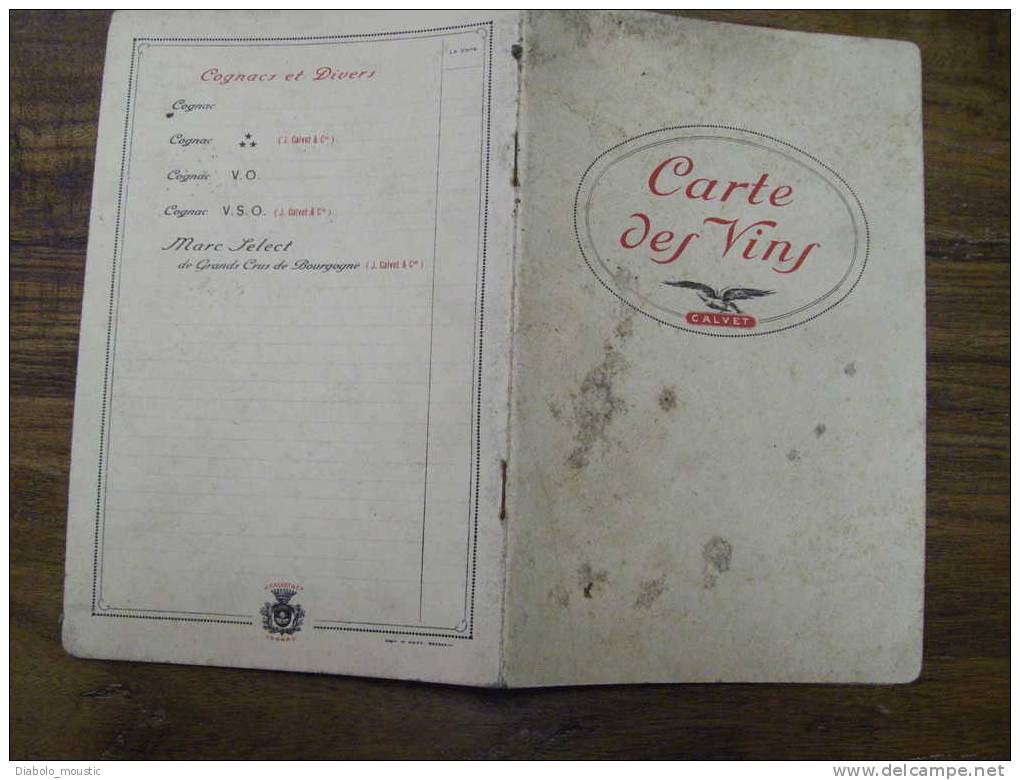 Cognacs et Divers
Le Verre
Cognac
Cognac ★★★ (J. Calvet & Cie)
Cognac V.O.
Cognac V.S.O. (J. Calvet & Cie)
Marc Select
de Grands Crus de Bourgogne (J. Calvet & Cie)
J. CALVET & Cie
COGNAC
Carte
des Vins
CALVET
Diabolo_moustic
www.delcampe.net